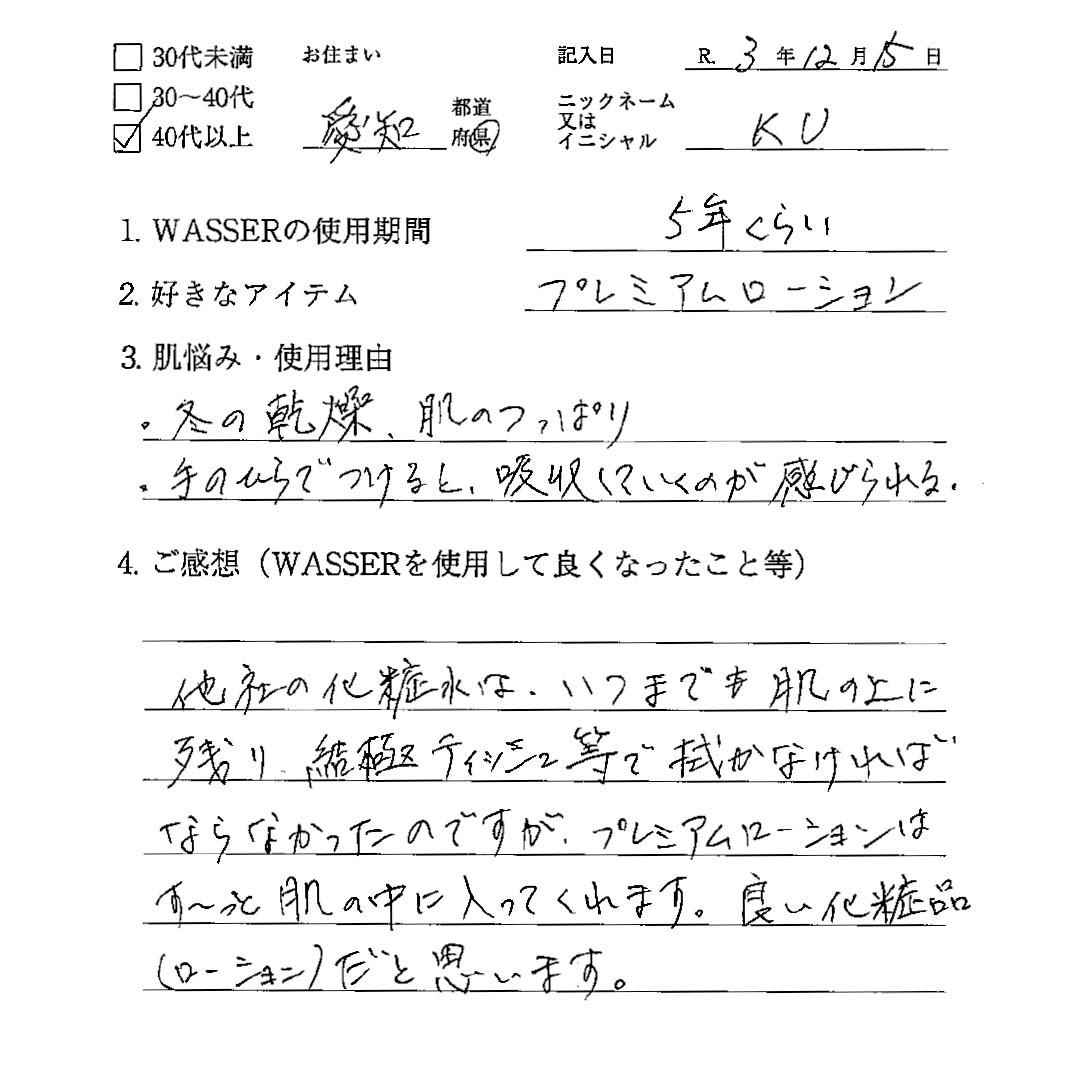 □ 30代未満 お住まい 記入日 R. 3 年 12 月 15 日
□ 30～40代 愛知 都道府県 ニックネーム又はイニシャル KU
☑ 40代以上
1. WASSERの使用期間 5年くらい
2. 好きなアイテム プレミアムローション
3. 肌悩み・使用理由
・冬の乾燥、肌のつっぱり
・手のひらでつけると、吸収していくのが感じられる。
4. ご感想（WASSERを使用して良くなったこと等）
他社の化粧水は、いつまでも肌の上に
残り、結極ティッシュ等で拭かなければ
ならなかったのですが、プレミアムローションは
す〜っと肌の中に入ってくれます。良い化粧品
（ローション）だと思います。